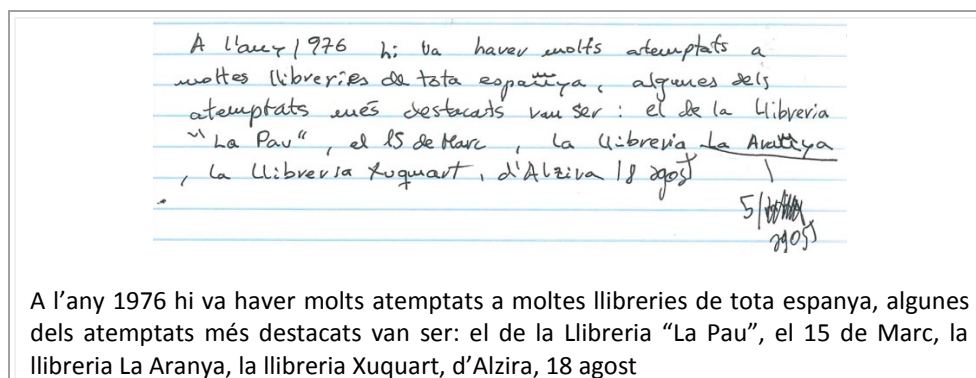 A l'any 1976 hi va haver molts atemptats a
moltes llibreries de tota espanya, algunes dels
atemptats més destacats van ser: el de la Llibreria
"La Pau", el 15 de Març, la llibreria La Aranya
, la Llibreria Xuquart, d'Alzira 18 agost
5/
agost
A l'any 1976 hi va haver molts atemptats a moltes llibreries de tota espanya, algunes
dels atemptats més destacats van ser: el de la Llibreria “La Pau”, el 15 de Marc, la
llibreria La Aranya, la llibreria Xuquart, d'Alzira, 18 agost